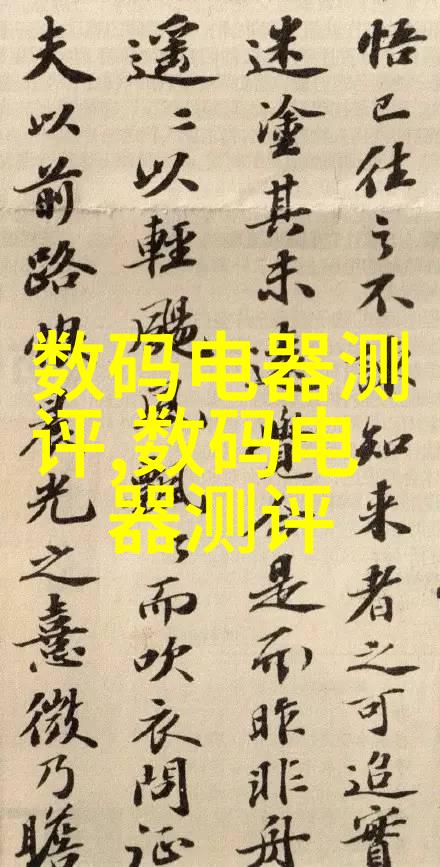 悟已往之不知来者之可追實
迷塗其未遠覺今是而昨非舟
遥〻以輕颺風飄〻而吹衣問征
夫以前路恨晨光之熹微乃瞻
数码电器测
评,数码电
器测评